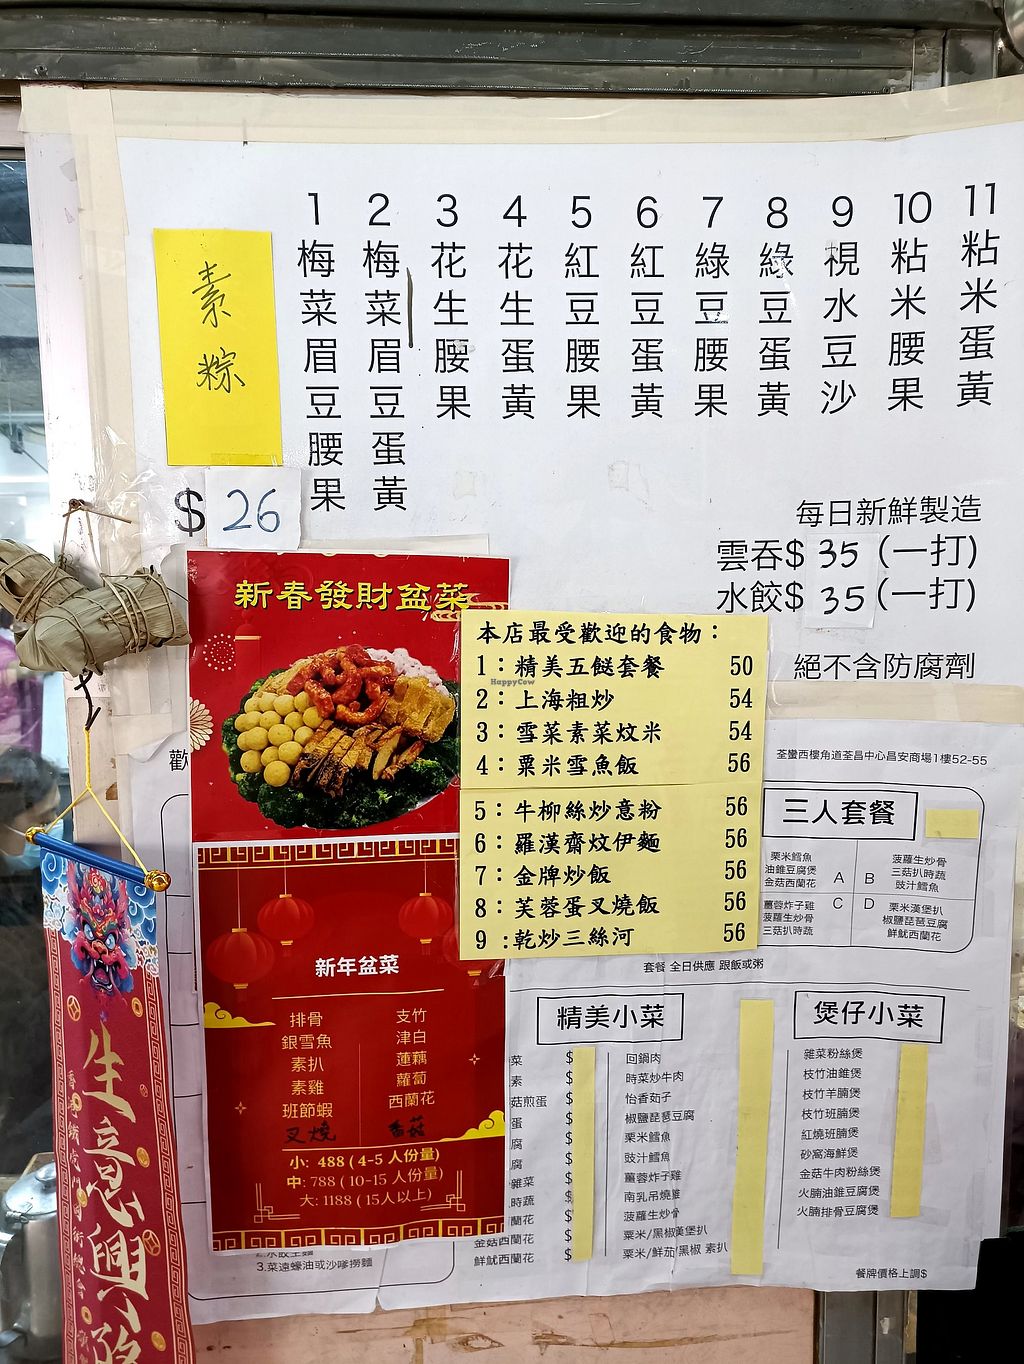 素粽
$26
1 梅菜眉豆腰果
2 梅菜眉豆蛋黃
3 花生腰果
4 花生蛋黃
5 紅豆腰果
6 紅豆蛋黃
7 綠豆腰果
8 綠豆蛋黃
9 梘水豆沙
10 粘米腰果
11 粘米蛋黃
每日新鮮製造
雲吞$35(一打)
水餃$35(一打)
絕不含防腐劑
新春發財盆菜
HappyCow
新年盆菜
排骨
銀雪魚
素扒
素雞
班節蝦
叉燒
支竹
津白
蓮藕
蘿蔔
西蘭花
香菇
小: 488 ( 4-5 人份量)
中: 788 ( 10-15 人份量)
大: 1188 ( 15人以上)
本店最受歡迎的食物：
1：精美五餸套餐 50
2：上海粗炒 54
3：雪菜素菜炆米 54
4：粟米雪魚飯 56
5：牛柳絲炒意粉 56
6：羅漢齋炆伊麵 56
7：金牌炒飯 56
8：芙蓉蛋叉燒飯 56
9 :乾炒三絲河 56
歡
荃灣西樓角道荃昌中心昌安商場1樓52-55
三人套餐
栗米鱈魚
油錐豆腐煲
金菇西蘭花
A
B
菠蘿生炒骨
三菇扒時蔬
豉汁鱈魚
薑蓉炸子雞
菠蘿生炒骨
三菇扒時蔬
C
D
栗米漢堡扒
椒鹽琵琶豆腐
鮮魷西蘭花
套餐 全日供應 跟飯或粥
精美小菜
菜 $
素 $
菇煎蛋 $
蛋 $
腐 $
腐 $
雜菜 $
時蔬 $
蘭花 $
金菇西蘭花 $
鮮魷西蘭花 $
回鍋肉
時菜炒牛肉
怡香茄子
椒鹽琵琶豆腐
栗米鱈魚
豉汁鱈魚
薑蓉炸子雞
南乳吊燒雞
菠蘿生炒骨
粟米/黑椒漢堡扒
粟米/鮮茄/黑椒 素扒
煲仔小菜
雜菜粉絲煲
枝竹油錐煲
枝竹羊腩煲
枝竹班腩煲
紅燒班腩煲
砂窩海鮮煲
金菇牛肉粉絲煲
火腩油錐豆腐煲
火腩排骨豆腐煲
餐牌價格上調$
2.水餃生麵
3.菜遠蠔油或沙嗲撈麵
生意興隆